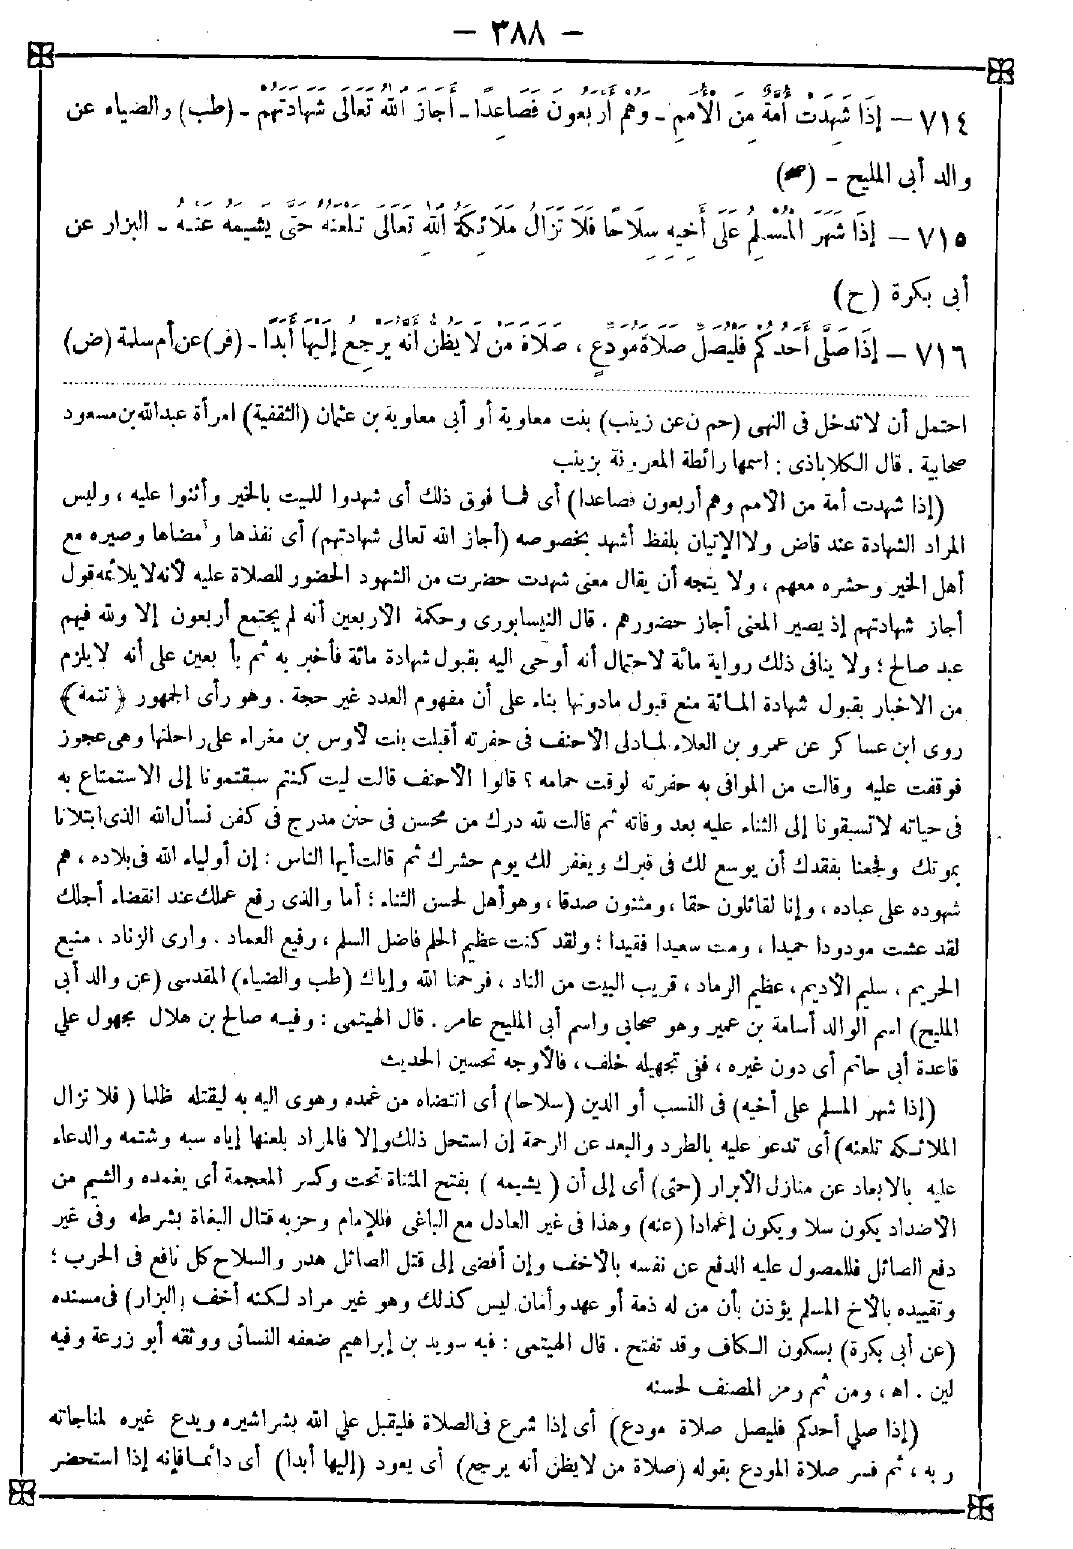 — ٣٨٨ —
٧١٤ — إِذَا شَهِدَتْ أُمَّةٌ مِنَ الْأُمَمِ - وَهُمْ أَرْبَعُونَ فَصَاعِدًا - أَجَازَ اللهُ تَعَالَى شَهَادَتَهُمْ - (طب) والضياء عن
والد أبى المليح - (صح)
٧١٥ — إِذَا شَهَرَ الْمُسْلِمُ عَلَى أَخِيهِ سِلَاحًا فَلَا تَزَالُ مَلَائِكَةُ اللهِ تَعَالَى تَلْعَنُهُ حَتَّى يَشِيمَهُ عَنْهُ - البزار عن
أبى بكرة (ح)
٧١٦ — إِذَا صَلَّى أَحَدُكُمْ فَلْيُصَلِّ صَلَاةَ مُوَدِّعٍ ، صَلَاةَ مَنْ لَا يَظُنُّ أَنَّهُ يَرْجِعُ إِلَيْهَا أَبَدًا - (فر) عن أم سلمة (ض)
احتمل أن لاتدخل فى النهى (حم ن عن زينب) بنت معاوية أو أبى معاوية بن عثمان (الثقفية) امرأة عبدالله بن مسعود
صحابية . قال الكلاباذى : اسمها رائطة المعروفة بزينب
(إذا شهدت أمة من الأمم وهم أربعون فصاعدا) أى فما فوق ذلك أى شهدوا للميت بالخير وأثنوا عليه ، وليس
المراد الشهادة عند قاض ولا الإتيان بلفظ أشهد بخصوصه (أجاز الله تعالى شهادتهم) أى نفذها وأمضاها وصيره مع
أهل الخير وحشره معهم ، ولا يتجه أن يقال معنى شهدت حضرت من الشهود الحضور للصلاة عليه لأنه لا يلائمه قول
أجاز شهادتهم إذ يصير المعنى أجاز حضورهم . قال النيسابورى وحكمة الأربعين أنه لم يجتمع أربعون إلا ولله فيهم
عبد صالح ؛ ولا ينافى ذلك رواية مائة لاحتمال أنه أوحى اليه بقبول شهادة مائة فأخبر به ثم بأربعين على أنه لا يلزم
من الاخبار بقبول شهادة المائة منع قبول مادونها بناء على أن مفهوم العدد غير حجة . وهو رأى الجمهور ﴿تتمة﴾
روى ابن عساكر عن عمرو بن العلاء لما دلى الأحنف فى حفرته أقبلت بنت لأوس بن مغراء على راحلتها وهى عجوز
فوقفت عليه وقالت من الموافى به حفرته لوقت حمامه ؟ قالوا الأحنف قالت ليت كنتم سبقتمونا إلى الاستمتاع به
فى حياته لا تسبقونا إلى الثناء عليه بعد وفاته ثم قالت لله درك من محسن فى جنن مدرج فى كفن نسأل الله الذى ابتلانا
بموتك وفجعنا بفقدك أن يوسع لك فى قبرك ويغفر لك يوم حشرك ثم قالت أيها الناس : إن أولياء الله فى بلاده ، هم
شهوده على عباده ، وإنا لقائلون حقا ، ومثنون صدقا ، وهو أهل لحسن الثناء ؛ أما والذى رفع عملك عند انقضاء أجلك
لقد عشت مودودا حميدا ، ومت سعيدا فقيدا ؛ ولقد كنت عظيم الحلم فاضل السلم ، رفيع العماد . وارى الزناد . منيع
الحريم ، سليم الأديم ، عظيم الرماد ، قريب البيت من الناد ، فرحمنا الله وإياك (طب والضياء) المقدسى (عن والد أبى
المليح) اسم الوالد أسامة بن عمير وهو صحابى واسم أبى المليح عامر . قال الهيتمى : وفيه صالح بن هلال مجهول علي
قاعدة أبى حاتم أى دون غيره ، ففى تجهيله خلف ، فالأوجه تحسين الحديث
(إذا شهر المسلم على أخيه) فى النسب أو الدين (سلاحا) أى انتضاه من غمده وهوى اليه به ليقتله ظلما ( فلا تزال
الملائكة تلعنه) أى تدعو عليه بالطرد والبعد عن الرحمة إن استحل ذلك وإلا فالمراد بلعنها إياه سبه وشتمه والدعاء
عليه بالابعاد عن منازل الأبرار (حتى) أى إلى أن ( يشيمه ) بفتح المثناة تحت وكسر المعجمة أى يغمده والشيم من
الأضداد يكون سلا ويكون إغمادا (عنه) وهذا فى غير العادل مع الباغى فللإمام وحزبه قتال البغاة بشرطه وفى غير
دفع الصائل فللمصول عليه الدفع عن نفسه بالأخف وإن أفضى إلى قتل الصائل هدر والسلاح كل نافع فى الحرب ؛
وتقييده بالأخ المسلم يؤذن بأن من له ذمة أو عهد وأمان ليس كذلك وهو غير مراد لكنه أخف (البزار) فى مسنده
(عن أبى بكرة) بسكون الكاف وقد تفتح . قال الهيتمى : فيه سويد بن إبراهيم ضعفه النسائى ووثقه أبو زرعة وفيه
لين . اه ، ومن ثم رمز المصنف لحسنه
(إذا صلي أحدكم فليصل صلاة مودع) أى إذا شرع فى الصلاة فليقبل علي الله بشراشيره ويدع غيره لمناجاته
ربه ، ثم فسر صلاة المودع بقوله (صلاة من لا يظن أنه يرجع) أى يعود (إليها أبدا) أى دائما فإنه إذا استحضر